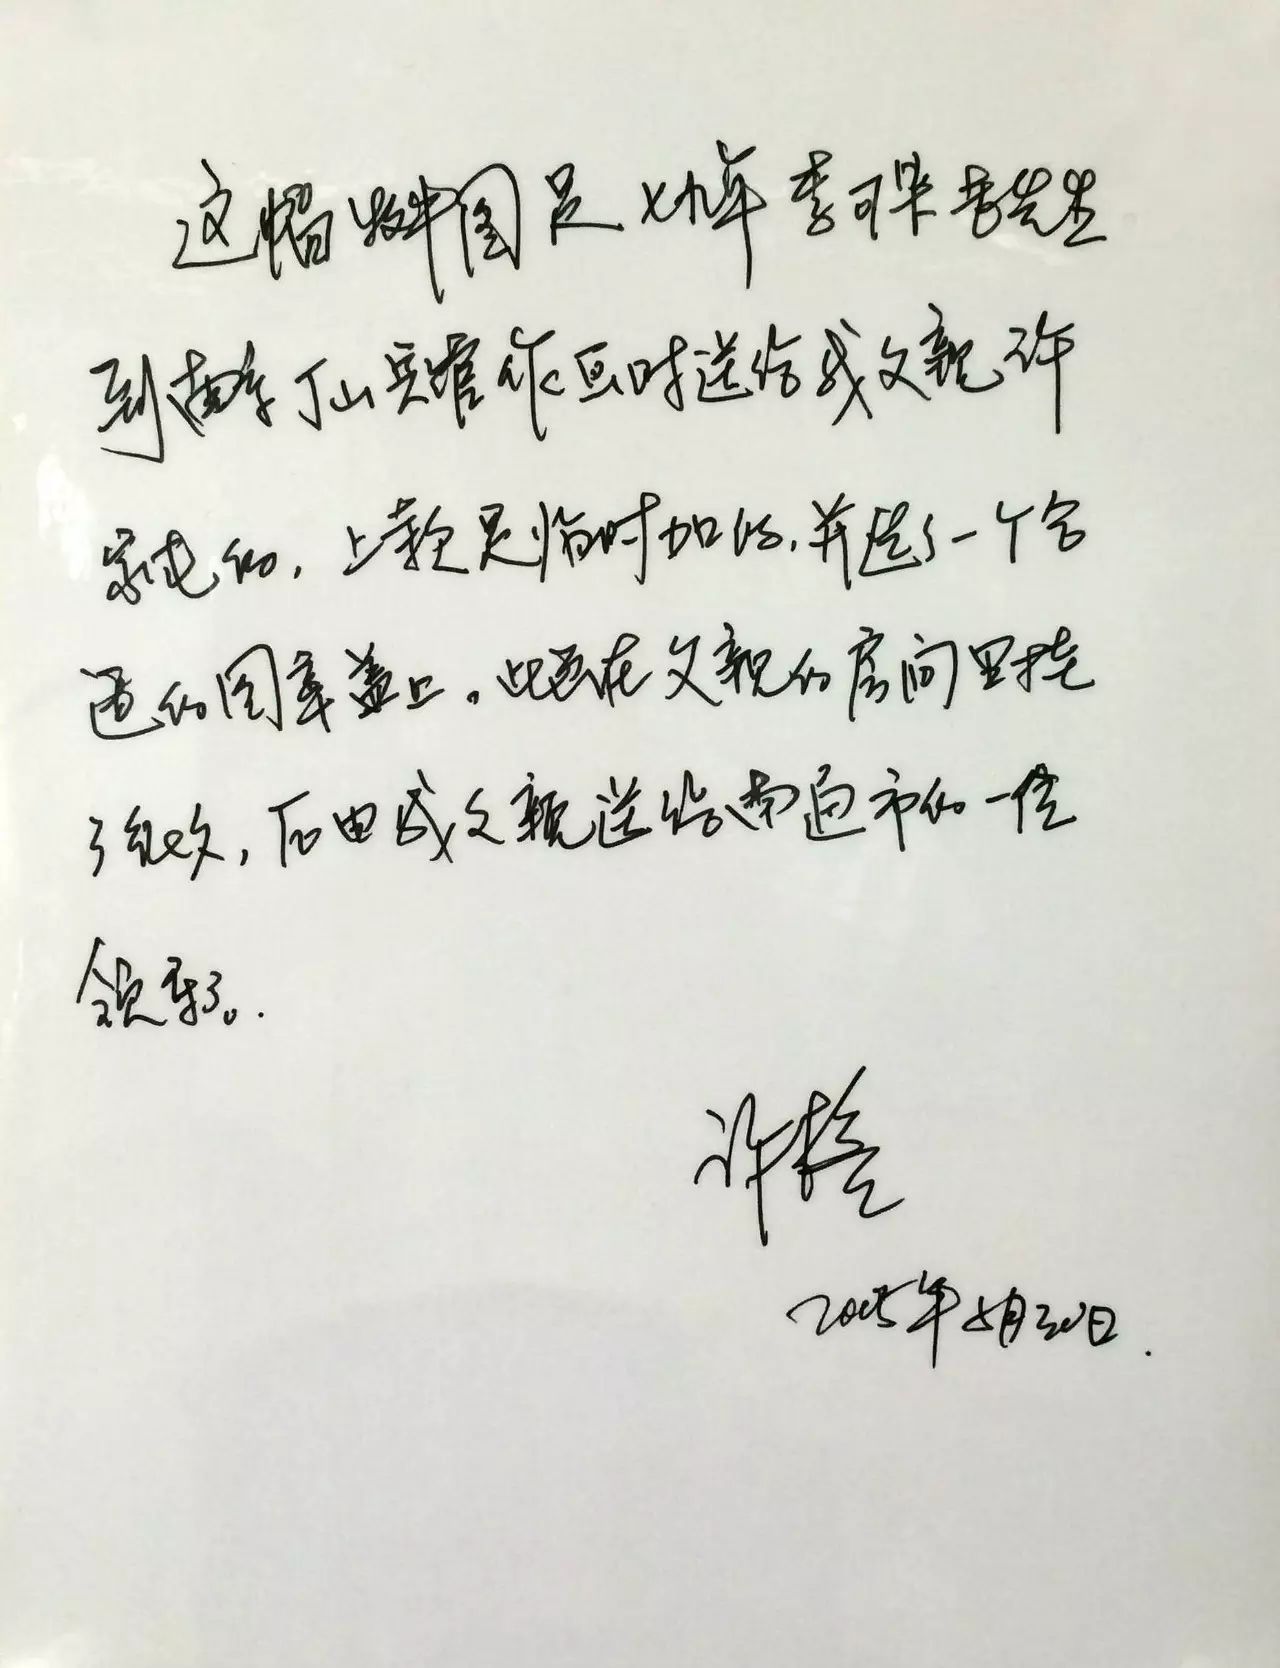 这幅牧牛图是七九年李可染先生
到南京丁山宾馆作画时送给我父亲许
家屯的，上款是临时加的，并选了一个合
适的图章盖上。此画在父亲的房间里挂
了很久，后由我父亲送给南通市的一位
领导了。
许
2005年5月30日.